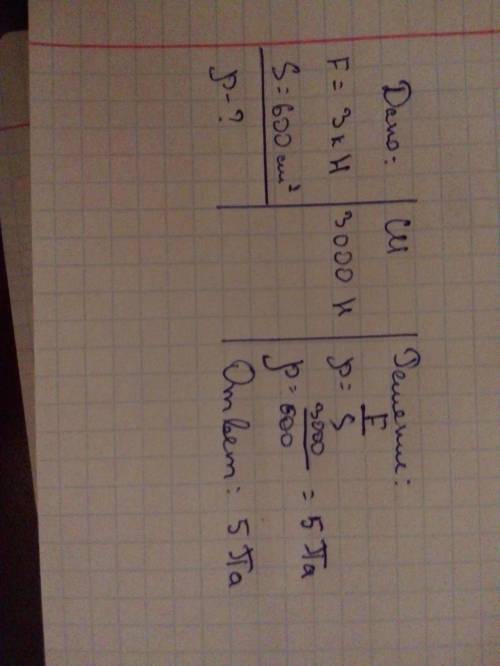 Дано:
F = 3кН
S = 600 см²
p - ?
СИ
3000 Н
Решение:
p = F/S
p = 3000/600 = 5 Па
Ответ: 5 Па